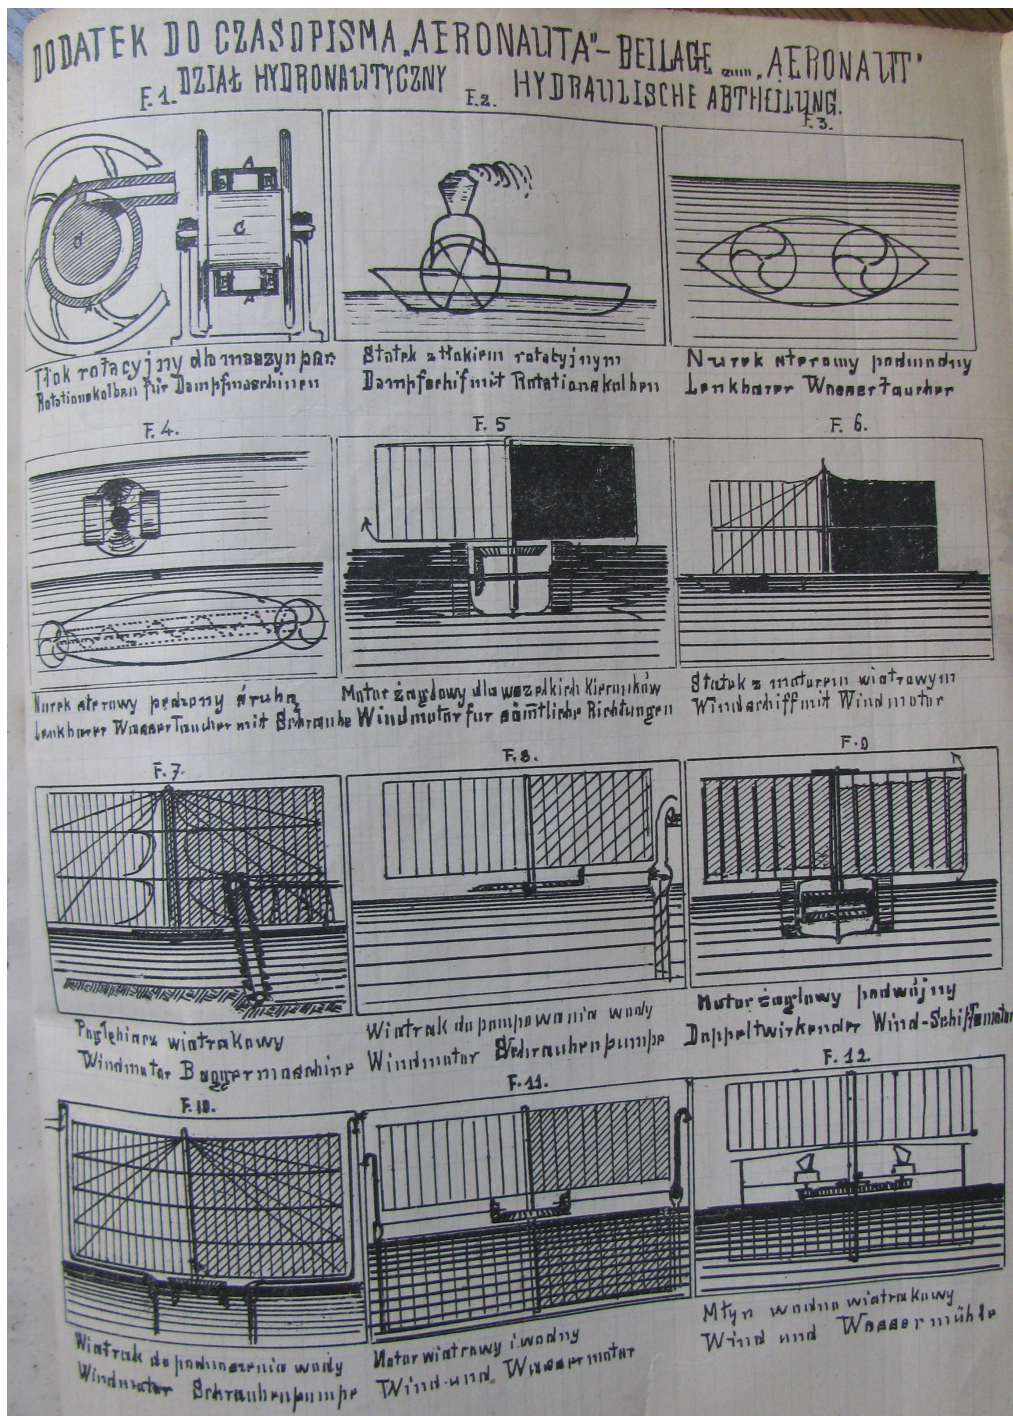 DODATEK DO CZASOPISMA „AERONAUTA” – BEILAGE ZUM „AERONAUT”
DZIAŁ HYDRONAUTYCZNY HYDRAULISCHE ABTHEILUNG.
F. 1. F. 2. F. 3.
A A
C C
A A
Tłok rotacyjny dla maszyn par.
Rotationskolben für Dampfmaschinen
Statek z tłokiem rotacyjnym
Dampfschif mit Rotationskolben
Nurek sterowy podwodny
Lenkbarer Wassertaucher
F. 4. F. 5 F. 6.
Nurek sterowy pędzony śrubą
Lenkbarer Wasser Taucher mit Schraube
Motor żaglowy dla wszelkich kierunków
Windmotor fur sämtliche Richtungen
Statek z motorem wiatrowym
Windschiff mit Windmotor
F. 7. F. 8. F. 9
Pogłębiarz wiatrakowy
Windmotor Baggermaschine
Wiatrak do pompowania wody
Windmotor Schraubenpumpe
Motor żaglowy podwójny
Doppeltwirkender Wind-Schiffsmotor
F. 10. F. 11. F. 12.
Wiatrak do podnoszenia wody
Windmotor Schraubenpumpe
Motor wiatrowy i wodny
Wind- und Wassermotor
Młyn wodno wiatrakowy
Wind und Wassermühle